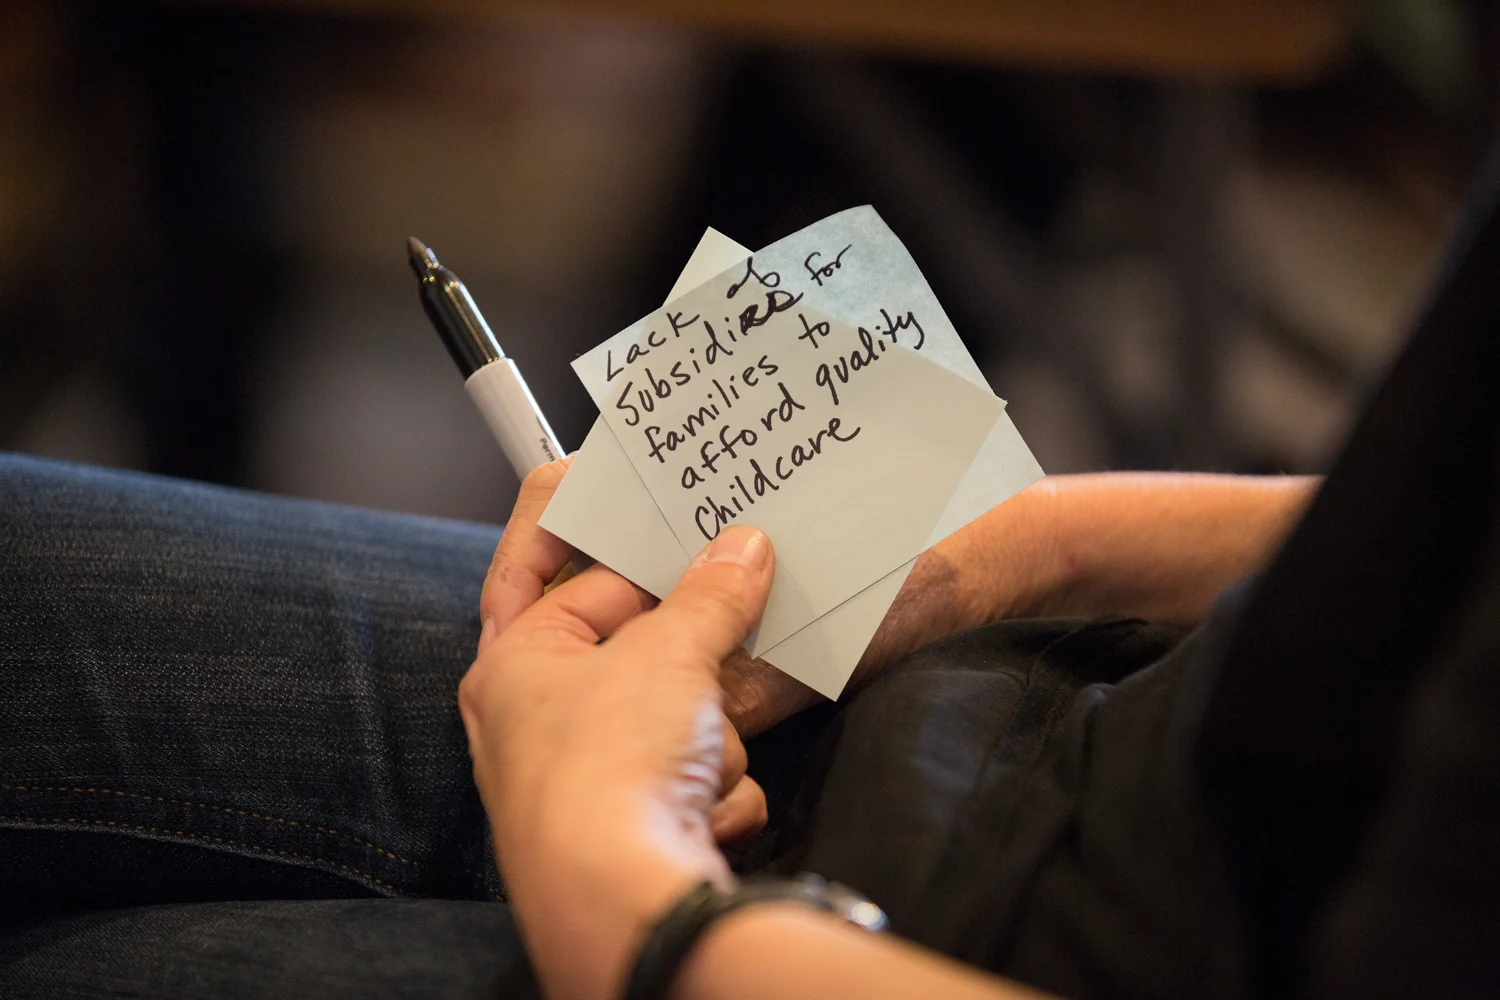 Lack of
Subsidies for
families to
afford quality
Childcare
Perm